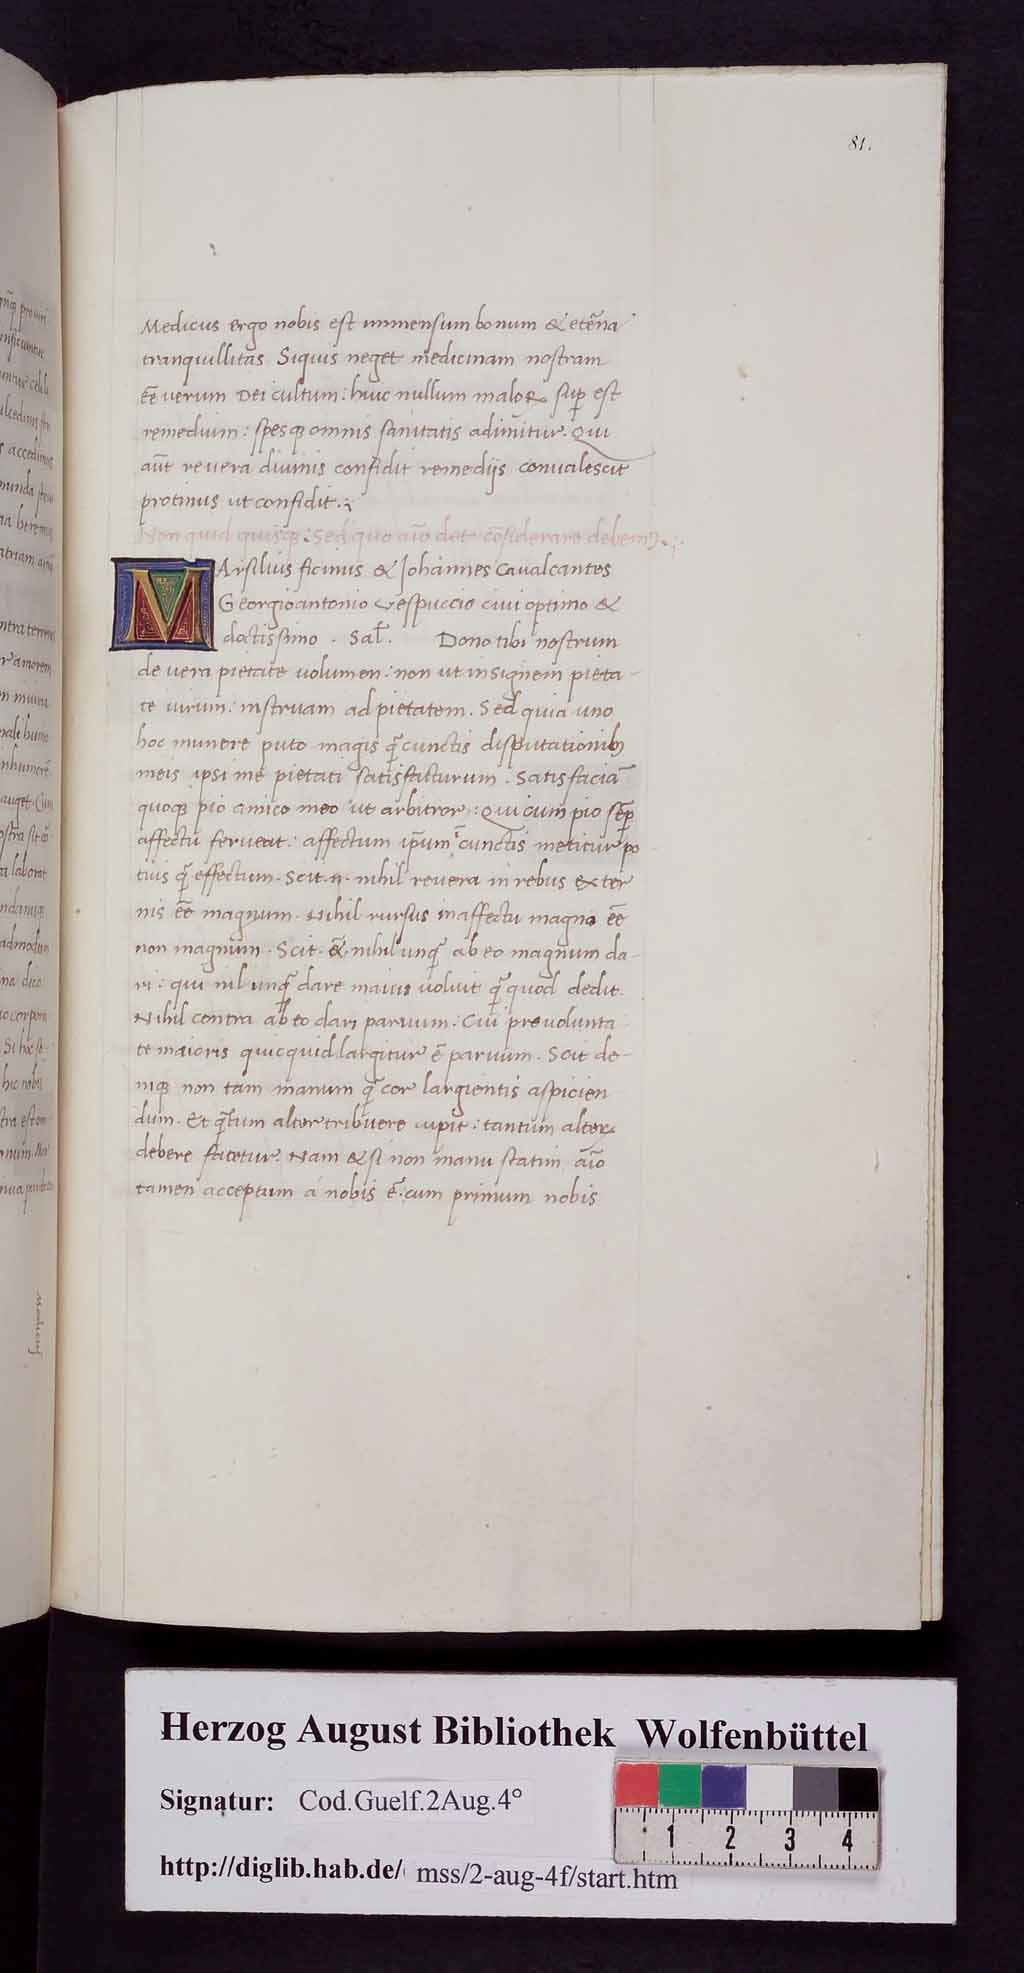 81.
Medicus ergo nobis est immensum bonum & etẽna
tranquillitas Siquis neget medicinam nostram
eẽ verum Dei cultum: huic nullum maloꝝ suꝑ est
remedium: spesqꝫ omnis sanitatis adimitur. Qui
aũt revera divinis confidit remedijs convalescit
protinus ut confidit.
Non quid quisqꝫ: Sed quo aĩo det cõsiderare debemꝰ.
MArsilius ficinus & Johannes Cavalcantes
Georgioantonio vespuccio civi optimo &
doctissimo. Sal̃. Dono tibi nostrum
de vera pietate volumen: non ut insignem pieta-
te virum: instruam ad pietatem. Sed quia uno
hoc munere puto magis qᷓ cunctis disputationibꝫ
meis ipsi me pietati satisfacturum. Satisfaciã
quoqꝫ pio amico meo ut arbitror: Qui cum pio semꝑ
affectu ferveat: affectum ip̃um ĩ cunctis metitur po
tius qᷓ effectum. Scit .n. nihil revera in rebus exter
nis eẽ magnum. Nihil rursus in affectu magno eẽ
non magnum. Scit &̃ nihil unqᷓ ab eo magnum da-
ri: qui nil unqᷓ dare maius voluit qᷓ quod dedit.
Nihil contra ab eo dari parvum: Cui pre volunta
te maioris quicquid largitur ẽ parvum. Scit de-
niqꝫ non tam manum qᷓ cor largientis aspicien
dum. Et qᷓtum alter tribuere cupit: tantum alteꝝ
debere fatetur. Nam & si non manu statim aĩo
tamen acceptum a nobis ẽ. cum primum nobis
Herzog August Bibliothek Wolfenbüttel
Signatur: Cod.Guelf.2Aug.4°
http://diglib.hab.de/ mss/2-aug-4f/start.htm
1 2 3 4